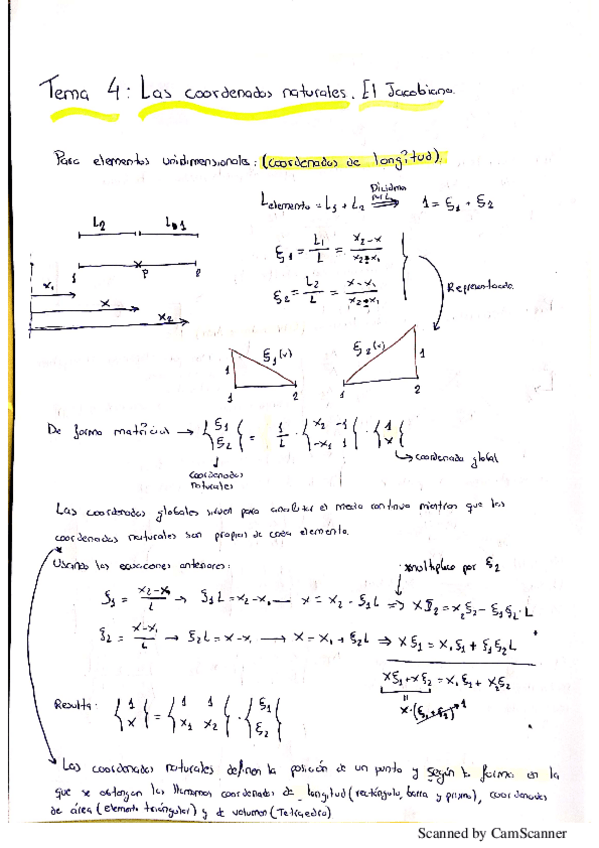 Tema 4: Las coordenadas naturales. El Jacobiano.
Para elementos unidimensionales: (coordenadas de longitud).
L elemento = L1 + L2 ⟹ 1 = ξ1 + ξ2
L2 L1
ξ1 = L1/L = (x2-x)/(x2-x1)
ξ2 = L2/L = (x-x1)/(x2-x1)
Representando
1 P 2
x1
x
x2
1 ξ1(x) 1 2
ξ2(x) 1 1 2
De forma matricial → {ξ1 ξ2} = 1/L · {x2 -1 -x1 1} · {1 x}
coordenada global
coordenadas naturales
Las coordenadas globales sirven para analizar el medio continuo mientras que las
coordenadas naturales son propias de cada elemento.
Usando las ecuaciones anteriores:
multiplico por ξ2
ξ1 = (x2-x)/L → ξ1L = x2-x — x = x2 - ξ1L ⟹ xξ2 = x2ξ2 - ξ1ξ2·L
ξ2 = (x-x1)/L → ξ2L = x-x1 → x = x1 + ξ2L ⟹ xξ1 = x1ξ1 + ξ1ξ2L
xξ1 + xξ2 = x1ξ1 + x2ξ2
x·(ξ1+ξ2) 1
Resulta: {1 x} = {1 1 x1 x2} · {ξ1 ξ2}
Las coordenadas naturales definen la posición de un punto y según la forma en la
que se obtengan las llamamos coordenadas de longitud (rectángulo, barra y prisma), coordenadas
de área (elemento triángular) y de volumen (Tetraedro)
Scanned by CamScanner